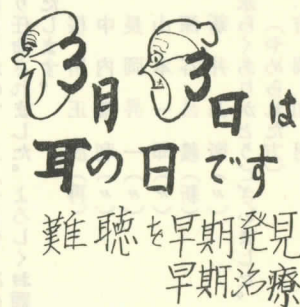 3月3日は
耳の日です
難聴を早期発見
早期治療